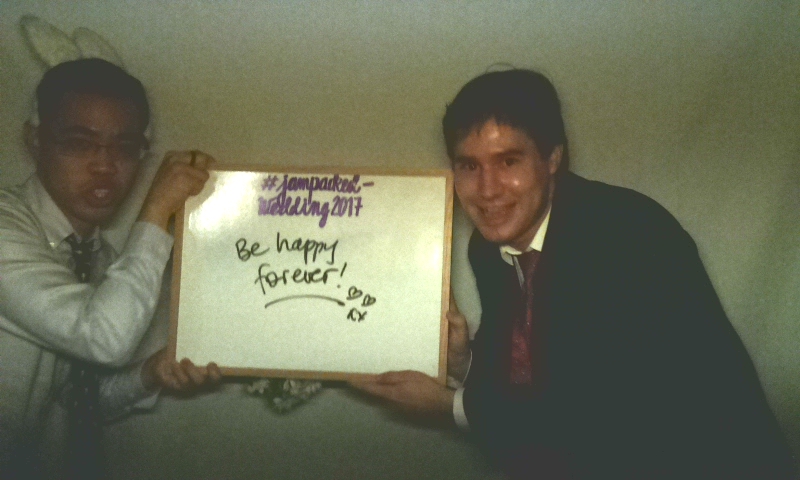 #jampacked-
wedding2017
Be happy
forever!